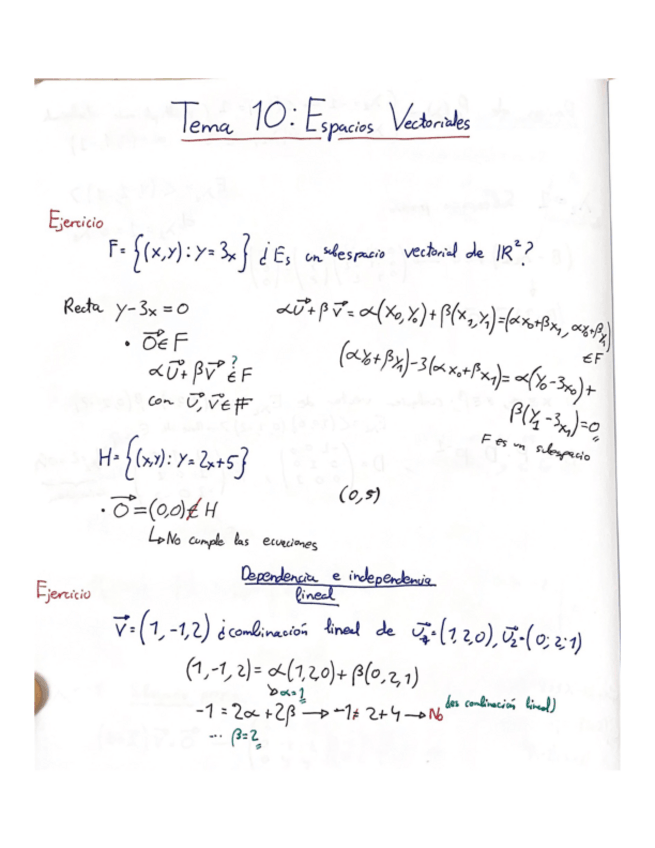 Tema 10: Espacios Vectoriales
Ejercicio
F = {(x,y): y=3x} ¿Es un subespacio vectorial de IR²?
Recta y-3x=0
• O⃗ ∈ F
αu⃗+βv⃗ ¿∈? F
con u⃗, v⃗ ∈ F
αu⃗+βv⃗ = α(x₀,y₀)+β(x₁,y₁)=(αx₀+βx₁, αy₀+βy₁)
∈F
(αy₀+βy₁)-3(αx₀+βx₁)= α(y₀-3x₀)+
β(y₁-3x₁)=0
F es un subespacio
H= {(x,y): y=2x+5}
(0,5)
• O⃗=(0,0)∉H
↳No cumple las ecuaciones
Dependencia e independencia
lineal
Ejercicio
v⃗=(1,-1,2) ¿combinación lineal de u⃗₁=(1,2,0), u⃗₂=(0,2,1)
(1,-1,2)= α(1,2,0)+β(0,2,1)
↳α=1
-1=2α+2β → -1≠2+4 → No (es combinación lineal)
... β=2